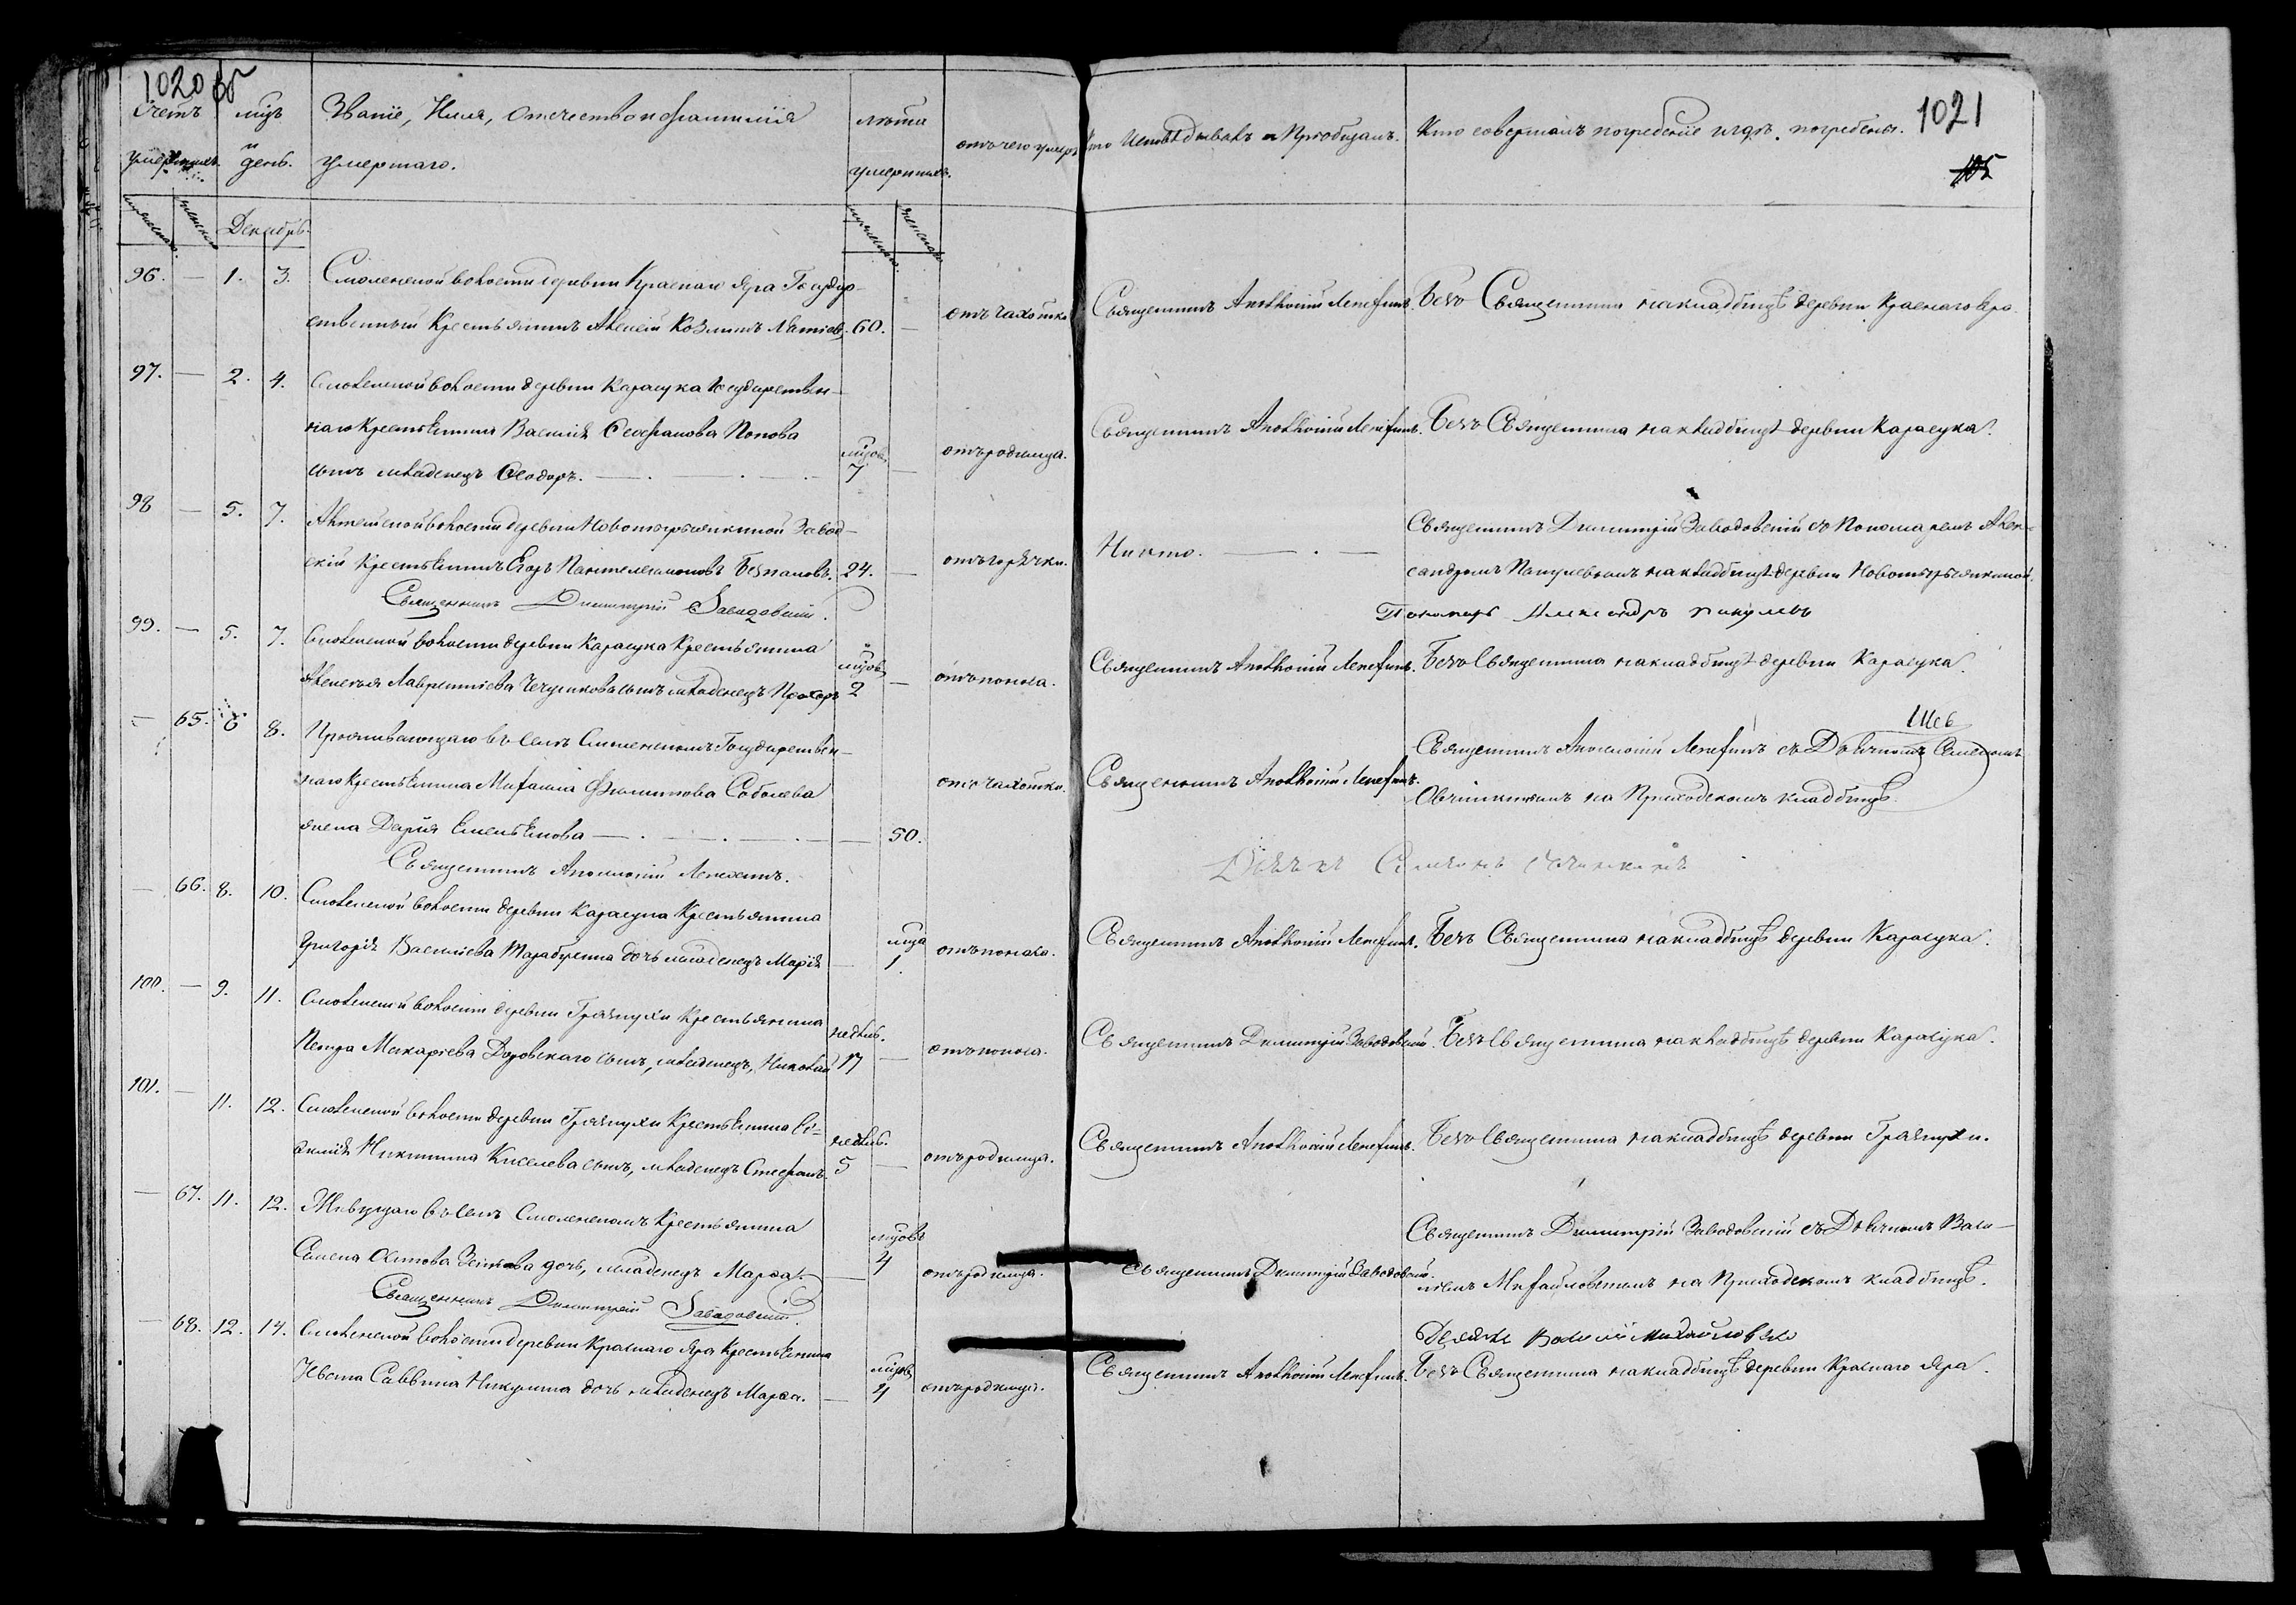 1020 об
1021
105
Счетъ умершихъ.
мужеска. женска.
мцъ и день.
Званіе, Имя, отечество и фамилія умершаго.
лѣта умершихъ.
мужеска. женска.
отъ чего умеръ
Кто Исповѣдывалъ и Пріобщалъ.
Кто совершалъ погребеніе и гдѣ погребены.
Декабрь.
96. — 1. 3. Смоленской волости деревни Краснаго Яра Государ-
ственный Крестьянинъ Алексій Козминъ 60. — отъ чахотки Священникъ Аполлоній Лепехинъ. Безъ Священника на кладбищѣ деревни Краснаго Яра.
97. — 2. 4. Смоленской волости деревни Карасука Государствен-
наго Крестьянина Василія Стефанова Попова
сынъ младенецъ Ѳеодоръ. мцовъ 7 — отъ родимца. Священникъ Аполлоній Лепехинъ. Безъ Священника на кладбищѣ деревни Карасука.
98 — 5. 7. волости деревни Новотырышкиной Завод-
скій Крестьянинъ Егоръ Пантелеимоновъ 24. — отъ горячки. Никто. — Священникъ Димитрій Заводовскій съ Пономаремъ Алек-
сандромъ на кладбищѣ деревни Новотырышкиной.
Священникъ Димитрій Заводовскій.
Пономарь Александръ
99. — 5. 7. Смоленской волости деревни Карасука Крестьянина
Алексѣя Лаврентіева сынъ младенецъ Прохоръ мцовъ 2 — отъ поноса. Священникъ Аполлоній Лепехинъ. Безъ Священника на кладбищѣ деревни Карасука.
— 65. 6 8. Проживающаго въ селѣ Смоленскомъ Государствен-
наго Крестьянина Михаила Филиппова Соболева
жена Дарія Емельянова — 50. отъ чахотки. Священникъ Аполлоній Лепехинъ. Священникъ Аполлоній Лепехинъ съ Дьячкомъ Семеномъ
Овчинкинымъ на Приходскомъ кладбищѣ.
Священникъ Аполлоній Лепехинъ.
Дьячекъ Семенъ Овчинкинъ
— 66. 8. 10. Смоленской волости деревни Карасука Крестьянина
Григорія Василіева Тарабукина дочь младенецъ Марія — мца 1. отъ поноса. Священникъ Аполлоній Лепехинъ. Безъ Священника на кладбищѣ деревни Карасука.
100. — 9. 11. Смоленской волости деревни Грязнухи Крестьянина
Петра Макаріева сынъ, младенецъ, Николай недѣль. 17 — отъ поноса. Священникъ Димитрій Заводовскій. Безъ Священника на кладбищѣ деревни Карасука.
101. — 11. 12. Смоленской волости деревни Грязнухи Крестьянина Ва-
силія Никитина Киселева сынъ, младенецъ Стефанъ. недѣль. 5 — отъ родимца. Священникъ Аполлоній Лепехинъ. Безъ Священника на кладбищѣ деревни Грязнухи.
— 67. 11. 12. Живущаго въ селѣ Смоленскомъ Крестьянина
Семена дочь, младенецъ Марѳа. — мцовъ 4 отъ родимца. Священникъ Димитрій Заводовскій. Священникъ Димитрій Заводовскій съ Дьячкомъ Васи-
ліемъ Михайловскимъ на Приходскомъ кладбищѣ.
Священникъ Димитрій Заводовскій.
Дьячекъ Василій Михайловскій
— 68. 12. 14. Смоленской волости деревни Краснаго Яра Крестьянина
Саввина Никулина дочь младенецъ Марѳа. — мцовъ 4 отъ родимца. Священникъ Аполлоній Лепехинъ. Безъ Священника на кладбищѣ деревни Краснаго Яра.